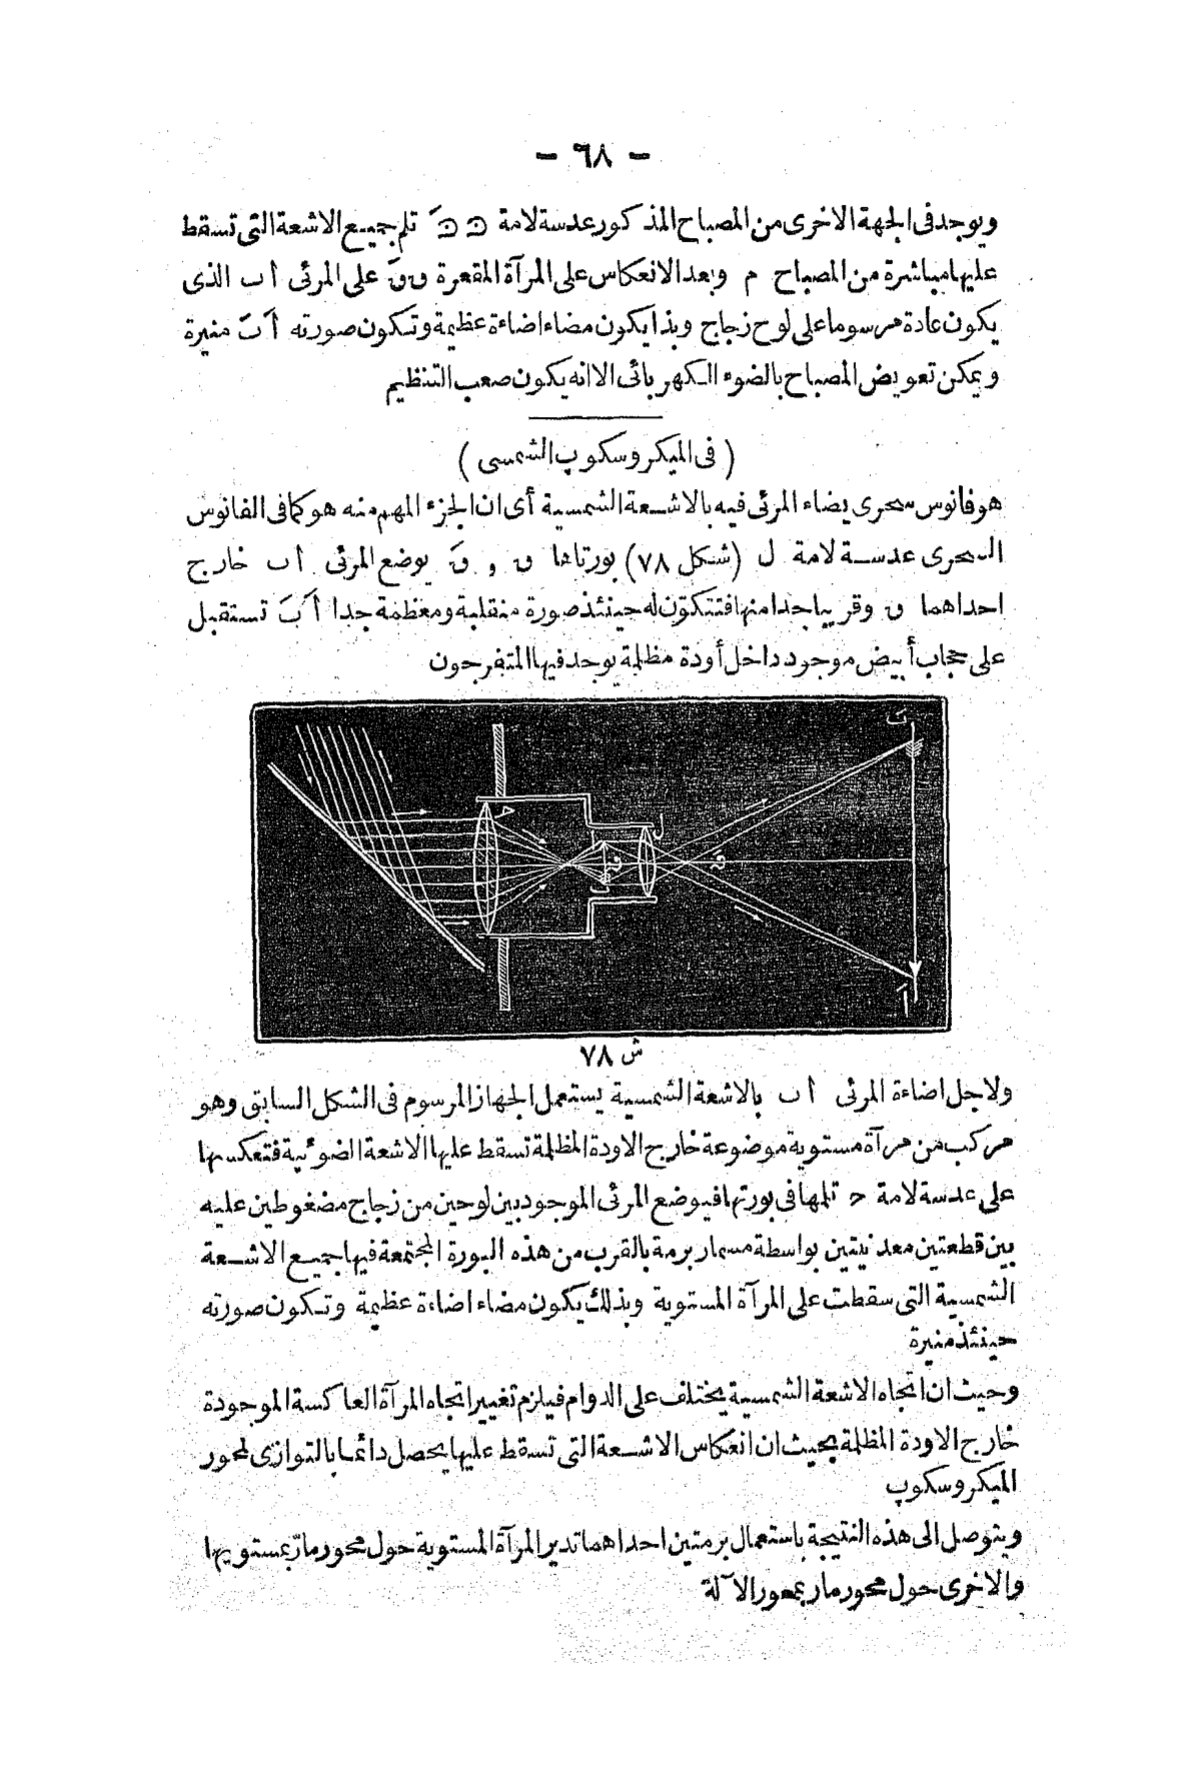 - ٦٨ -
ويوجد فى الجهة الاخرى من المصباح المذكور عدسة لامة تلم جميع الاشعة التى تسقط
عليها مباشرة من المصباح م وبعد الانعكاس على المرآة المقعرة ں ںَ على المرئى اٮ الذى
يكون عادة مرسوما على لوح زجاج وبذا يكون مضاء اضاءة عظيمة وتتكون صورته اَ ٮَ منيرة
ويمكن تعويض المصباح بالضوء الكهربائى الا انه يكون صعب التنظيم
(فى الميكروسكوب الشمسى)
هو فانوس سحرى يضاء المرئى فيه بالاشعة الشمسية أى ان الجزء المهم منه هو كما فى الفانوس
السحرى عدسة لامة ل (شكل ٧٨) بورتاها ں و ںَ يوضع المرئى اٮ خارج
احداهما ں وقريبا جدا منها فتتكوّن له حينئذ صورة منقلبة ومعظمة جدا اَ ٮَ تستقبل
على حجاب أبيض موجود داخل أودة مظلمة يوجد فيها المتفرجون
ٮَ
ح
ل
ں
ں
اَ
ش ٧٨
ولاجل اضاءة المرئى اٮ بالاشعة الشمسية يستعمل الجهاز المرسوم فى الشكل السابق وهو
مركب من مرآة مستوية موضوعة خارج الاودة المظلمة تسقط عليها الاشعة الضوئية فتعكسها
على عدسة لامة ح تلمها فى بورتها فيوضع المرئى الموجود بين لوحين من زجاج مضغوطين عليه
بين قطعتين معدنيتين بواسطة مسمار برمة بالقرب من هذه البورة المجتمعة فيها جميع الاشعة
الشمسية التى سقطت على المرآة المستوية وبذلك يكون مضاء اضاءة عظيمة وتكون صورته
حينئذ منيرة
وحيث ان اتجاه الاشعة الشمسية يختلف على الدوام فيلزم تغيير اتجاه المرآة العاكسة الموجودة
خارج الاودة المظلمة بحيث ان انعكاس الاشعة التى تسقط عليها يحصل دائما بالتوازى لمحور
الميكروسكوب
ويتوصل الى هذه النتيجة باستعمال برمتين احداهما تدير المرآة المستوية حول محور مارّ بمستويها
والاخرى حول محور مار بمحور الآلة